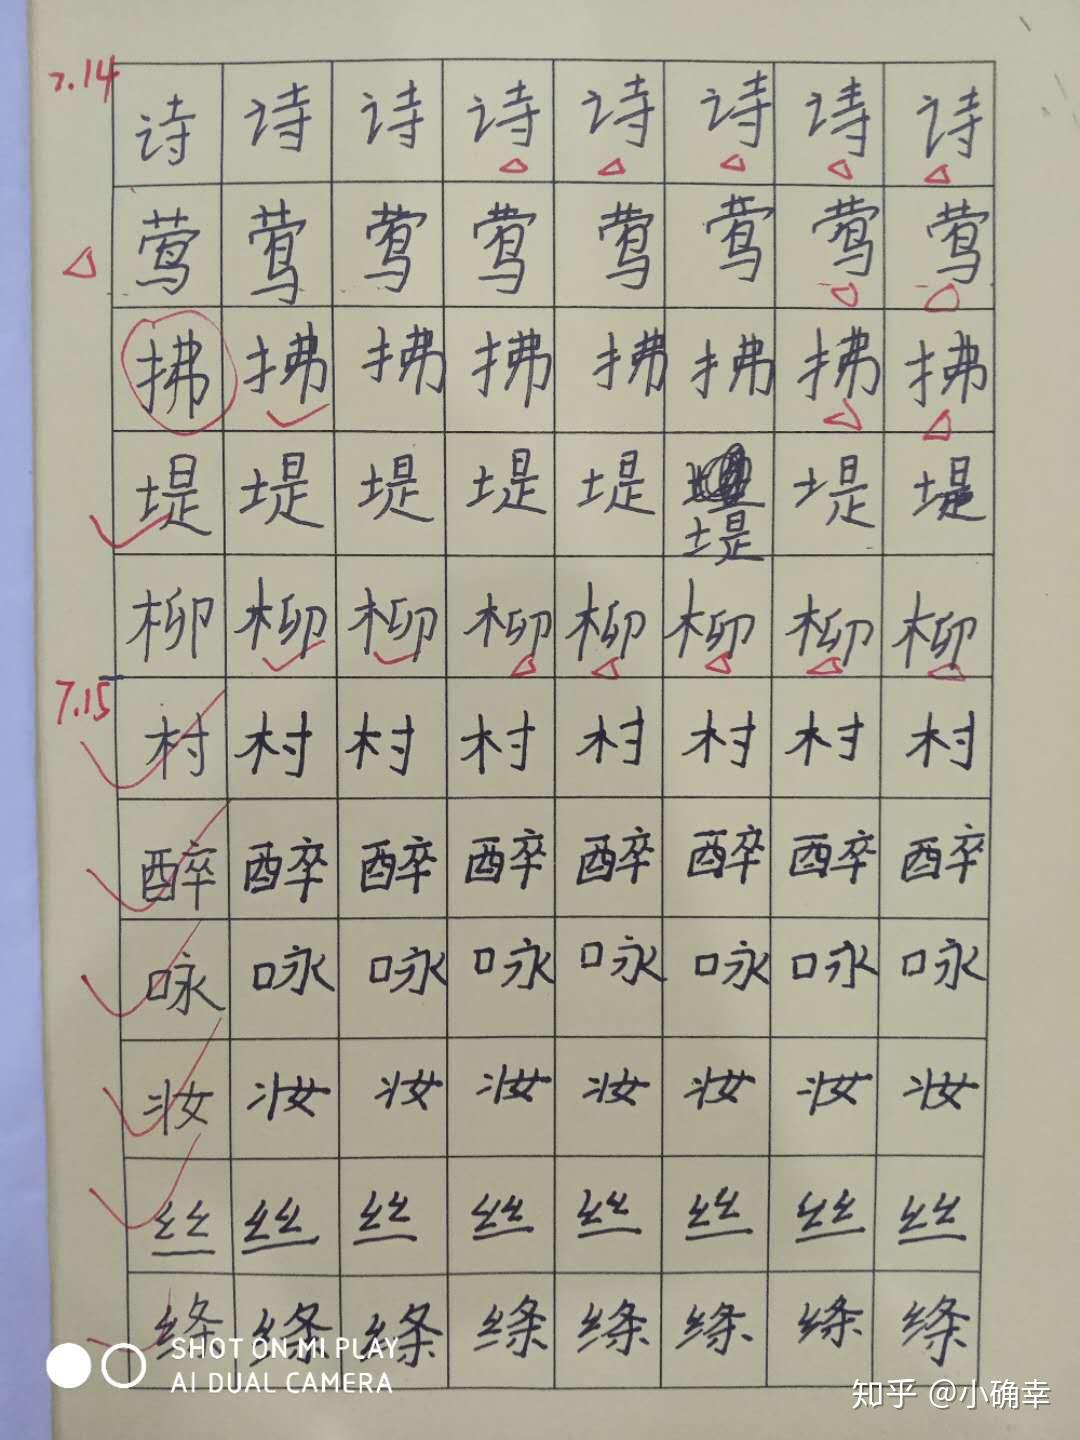 7.14
诗 诗 诗 诗 诗 诗 诗 诗
莺 莺 莺 莺 莺 莺 莺 莺
拂 拂 拂 拂 拂 拂 拂 拂
堤 堤 堤 堤 堤 堤 堤 堤
柳 柳 柳 柳 柳 柳 柳 柳
7.15
村 村 村 村 村 村 村 村
醉 醉 醉 醉 醉 醉 醉 醉
咏 咏 咏 咏 咏 咏 咏 咏
汝 汝 汝 汝 汝 汝 汝 汝
丝 丝 丝 丝 丝 丝 丝 丝
绦 绦 绦 绦 绦 绦 绦 绦
SHOT ON MI PLAY
AI DUAL CAMERA
知乎 @小确幸